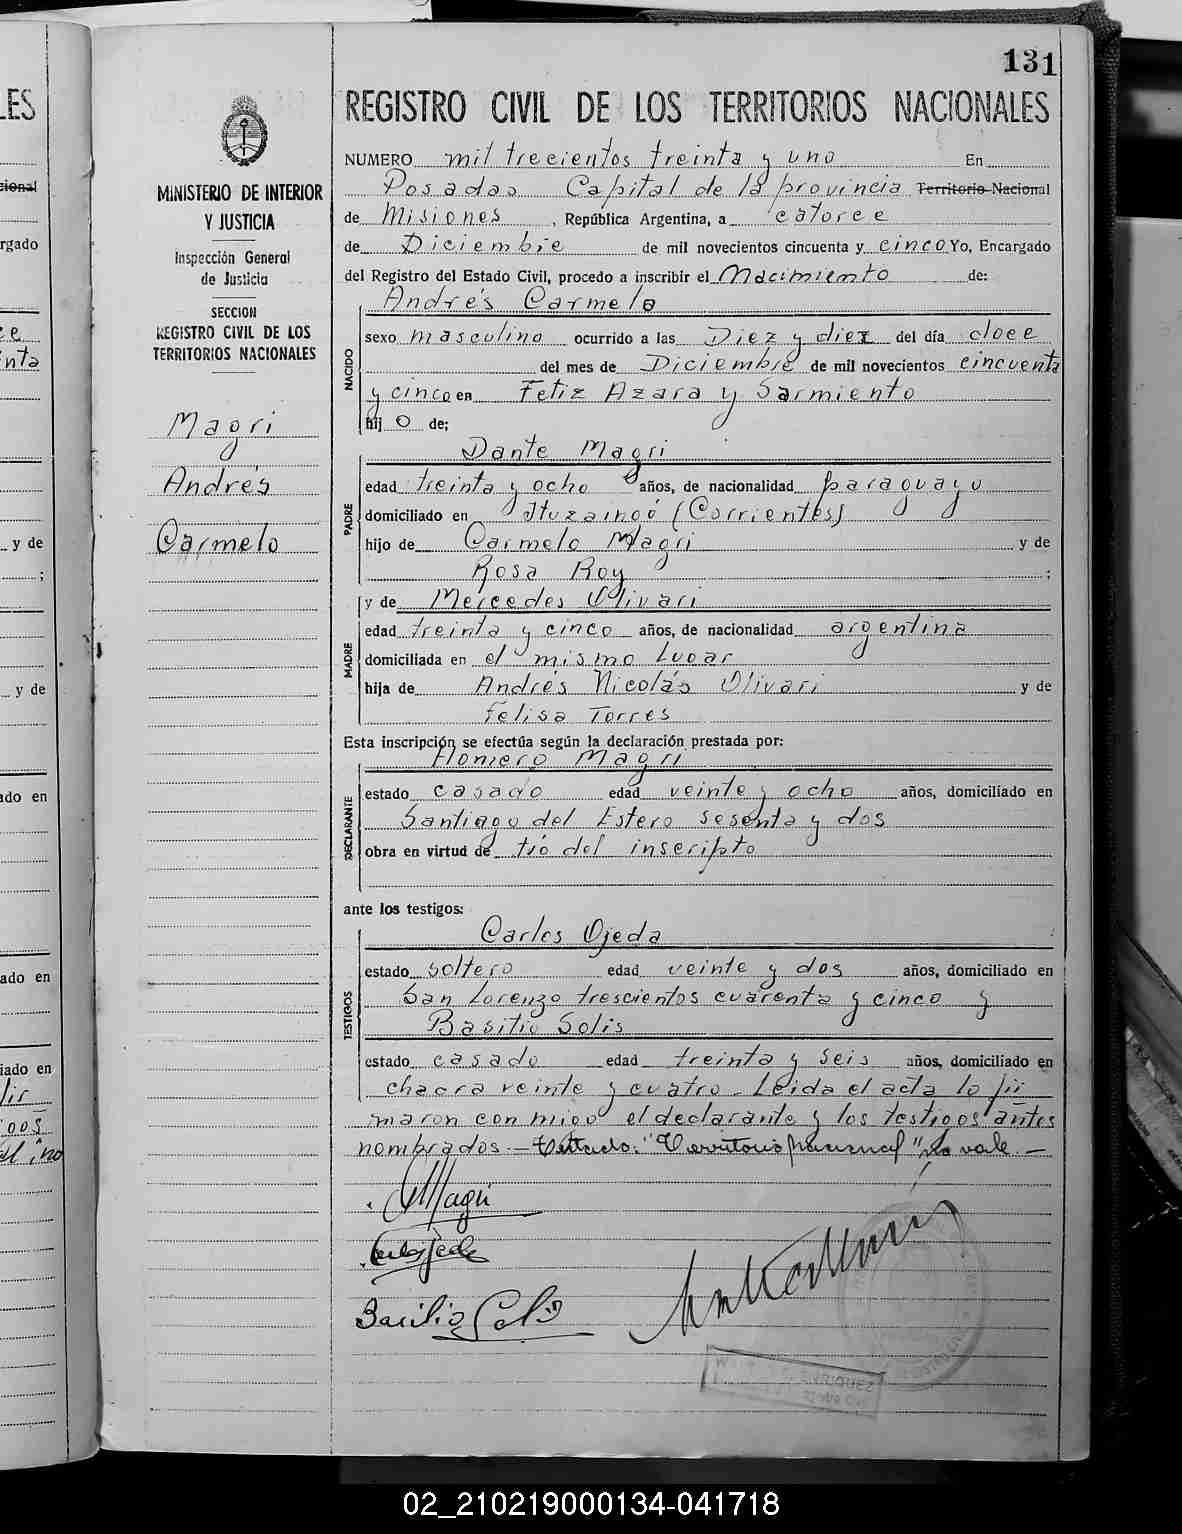 131
REGISTRO CIVIL DE LOS TERRITORIOS NACIONALES
MINISTERIO DE INTERIOR
Y JUSTICIA
Inspección General
de Justicia
SECCION
REGISTRO CIVIL DE LOS
TERRITORIOS NACIONALES
Magri
Andrés
Carmelo
NUMERO mil trecientos treinta y uno En
Posadas Capital de la provincia Territorio Nacional
de Misiones, República Argentina, a catorce
de Diciembre de mil novecientos cincuenta y cinco Yo, Encargado
del Registro del Estado Civil, procedo a inscribir el Nacimiento de:
Andrés Carmelo
NACIDO
sexo masculino ocurrido a las Diez y diez del día doce
del mes de Diciembre de mil novecientos cincuenta
y cinco en Feliz Azara y Sarmiento
hij o de;
Dante Magri
PADRE
edad treinta y ocho años, de nacionalidad paraguayo
domiciliado en Ituzaingó (Corrientes)
hijo de Carmelo Magri y de
Rosa Roy ;
y de Mercedes Olivari
MADRE
edad treinta y cinco años, de nacionalidad argentina
domiciliada en el mismo lugar
hija de Andrés Nicolás Olivari y de
Felisa Torres
Esta inscripción se efectúa según la declaración prestada por:
Homero Magri
DECLARANTE
estado casado edad veinte y ocho años, domiciliado en
Santiago del Estero sesenta y dos
obra en virtud de tió del inscripto
ante los testigos:
Carlos Ojeda
TESTIGOS
estado soltero edad veinte y dos años, domiciliado en
San Lorenzo trescientos cuarenta y cinco y
Basilio Solis
estado casado edad treinta y seis años, domiciliado en
chacra veinte y cuatro. Leida el acta la fir
maron con migo el declarante y los testigos antes
nombrados.— Testado: "Territorio Nacional" No vale.—
Magri
Carlos Ojeda
Basilio Solis
02_210219000134-041718